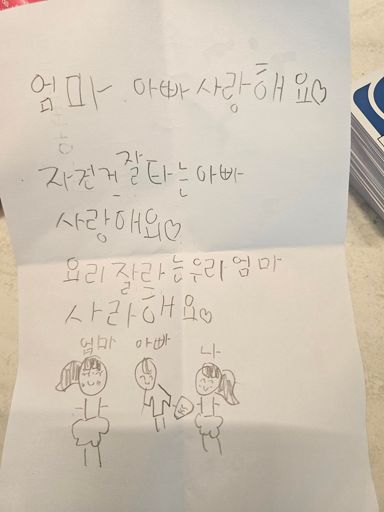 엄마 아빠 사랑해요♡
자전거 잘타는 아빠
사랑해요♡
요리 잘라는 우리 엄마
사라해요♡
엄마 아빠 나